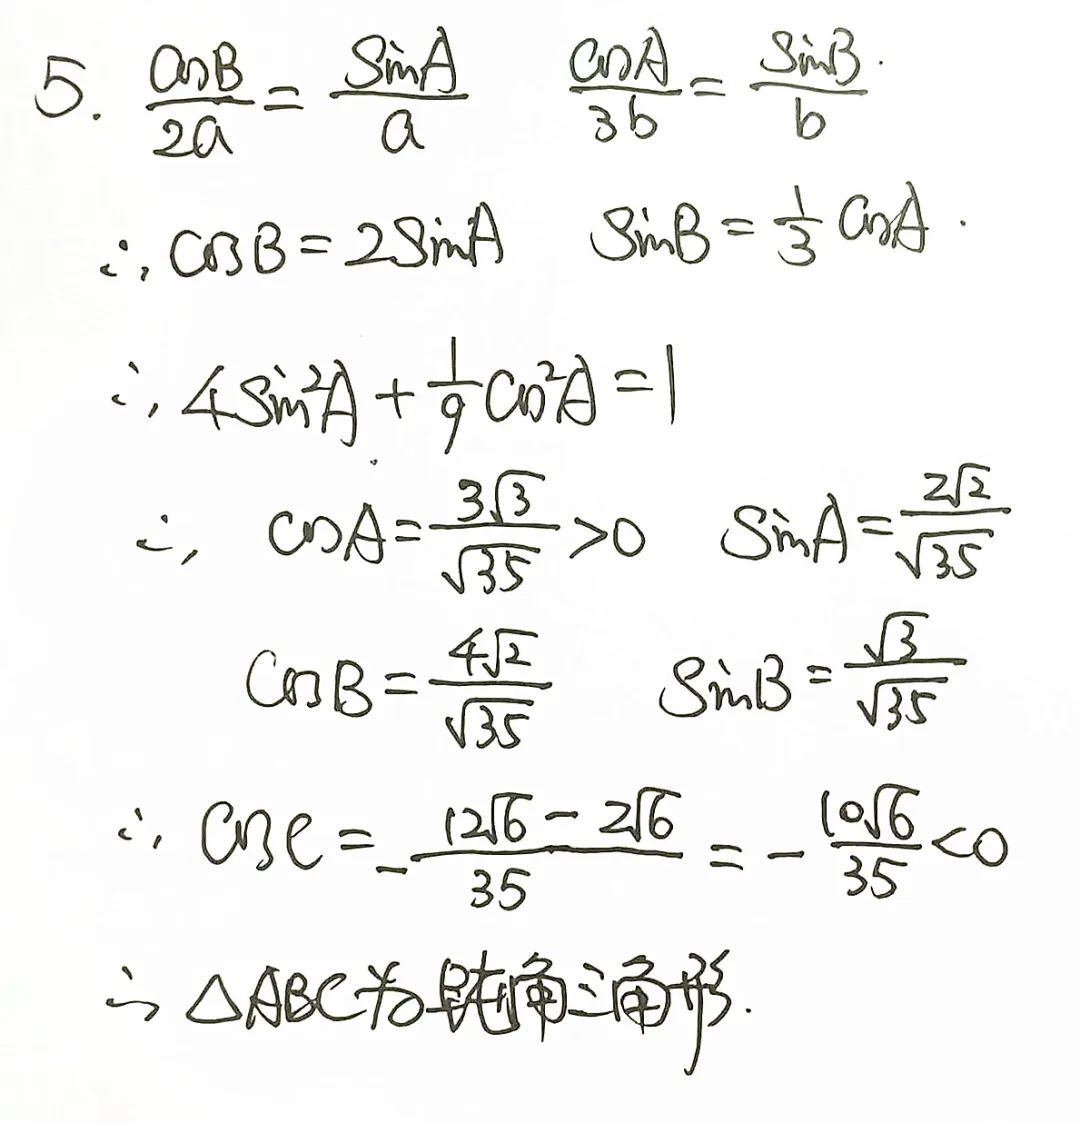 5. cosB/2a = sinA/a cosA/3b = sinB/b.
∴ cosB = 2sinA sinB = 1/3 cosA.
∴ 4sin²A + 1/9 cos²A = 1
∴ cosA = 3√3/√35 > 0 sinA = 2√2/√35
cosB = 4√2/√35 sinB = √3/√35
∴ cosC = -(12√6 - 2√6)/35 = -10√6/35 < 0
∴ △ABC为钝角三角形.